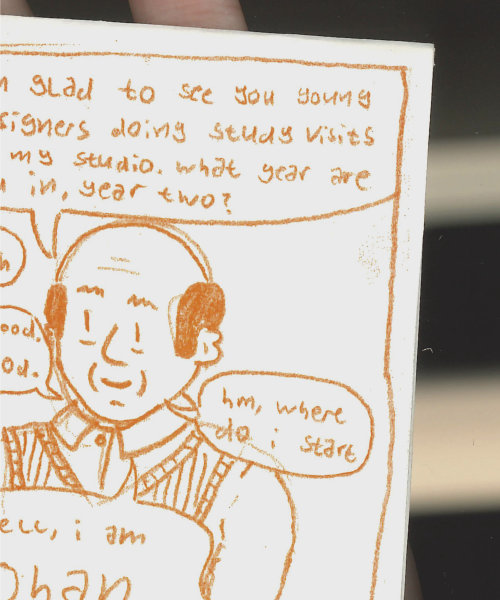 glad to see you young
signers doing study visits
my studio. what year are
in, year two?
h
ood.
od.
hm, where
do i start
ell, i am
ohan